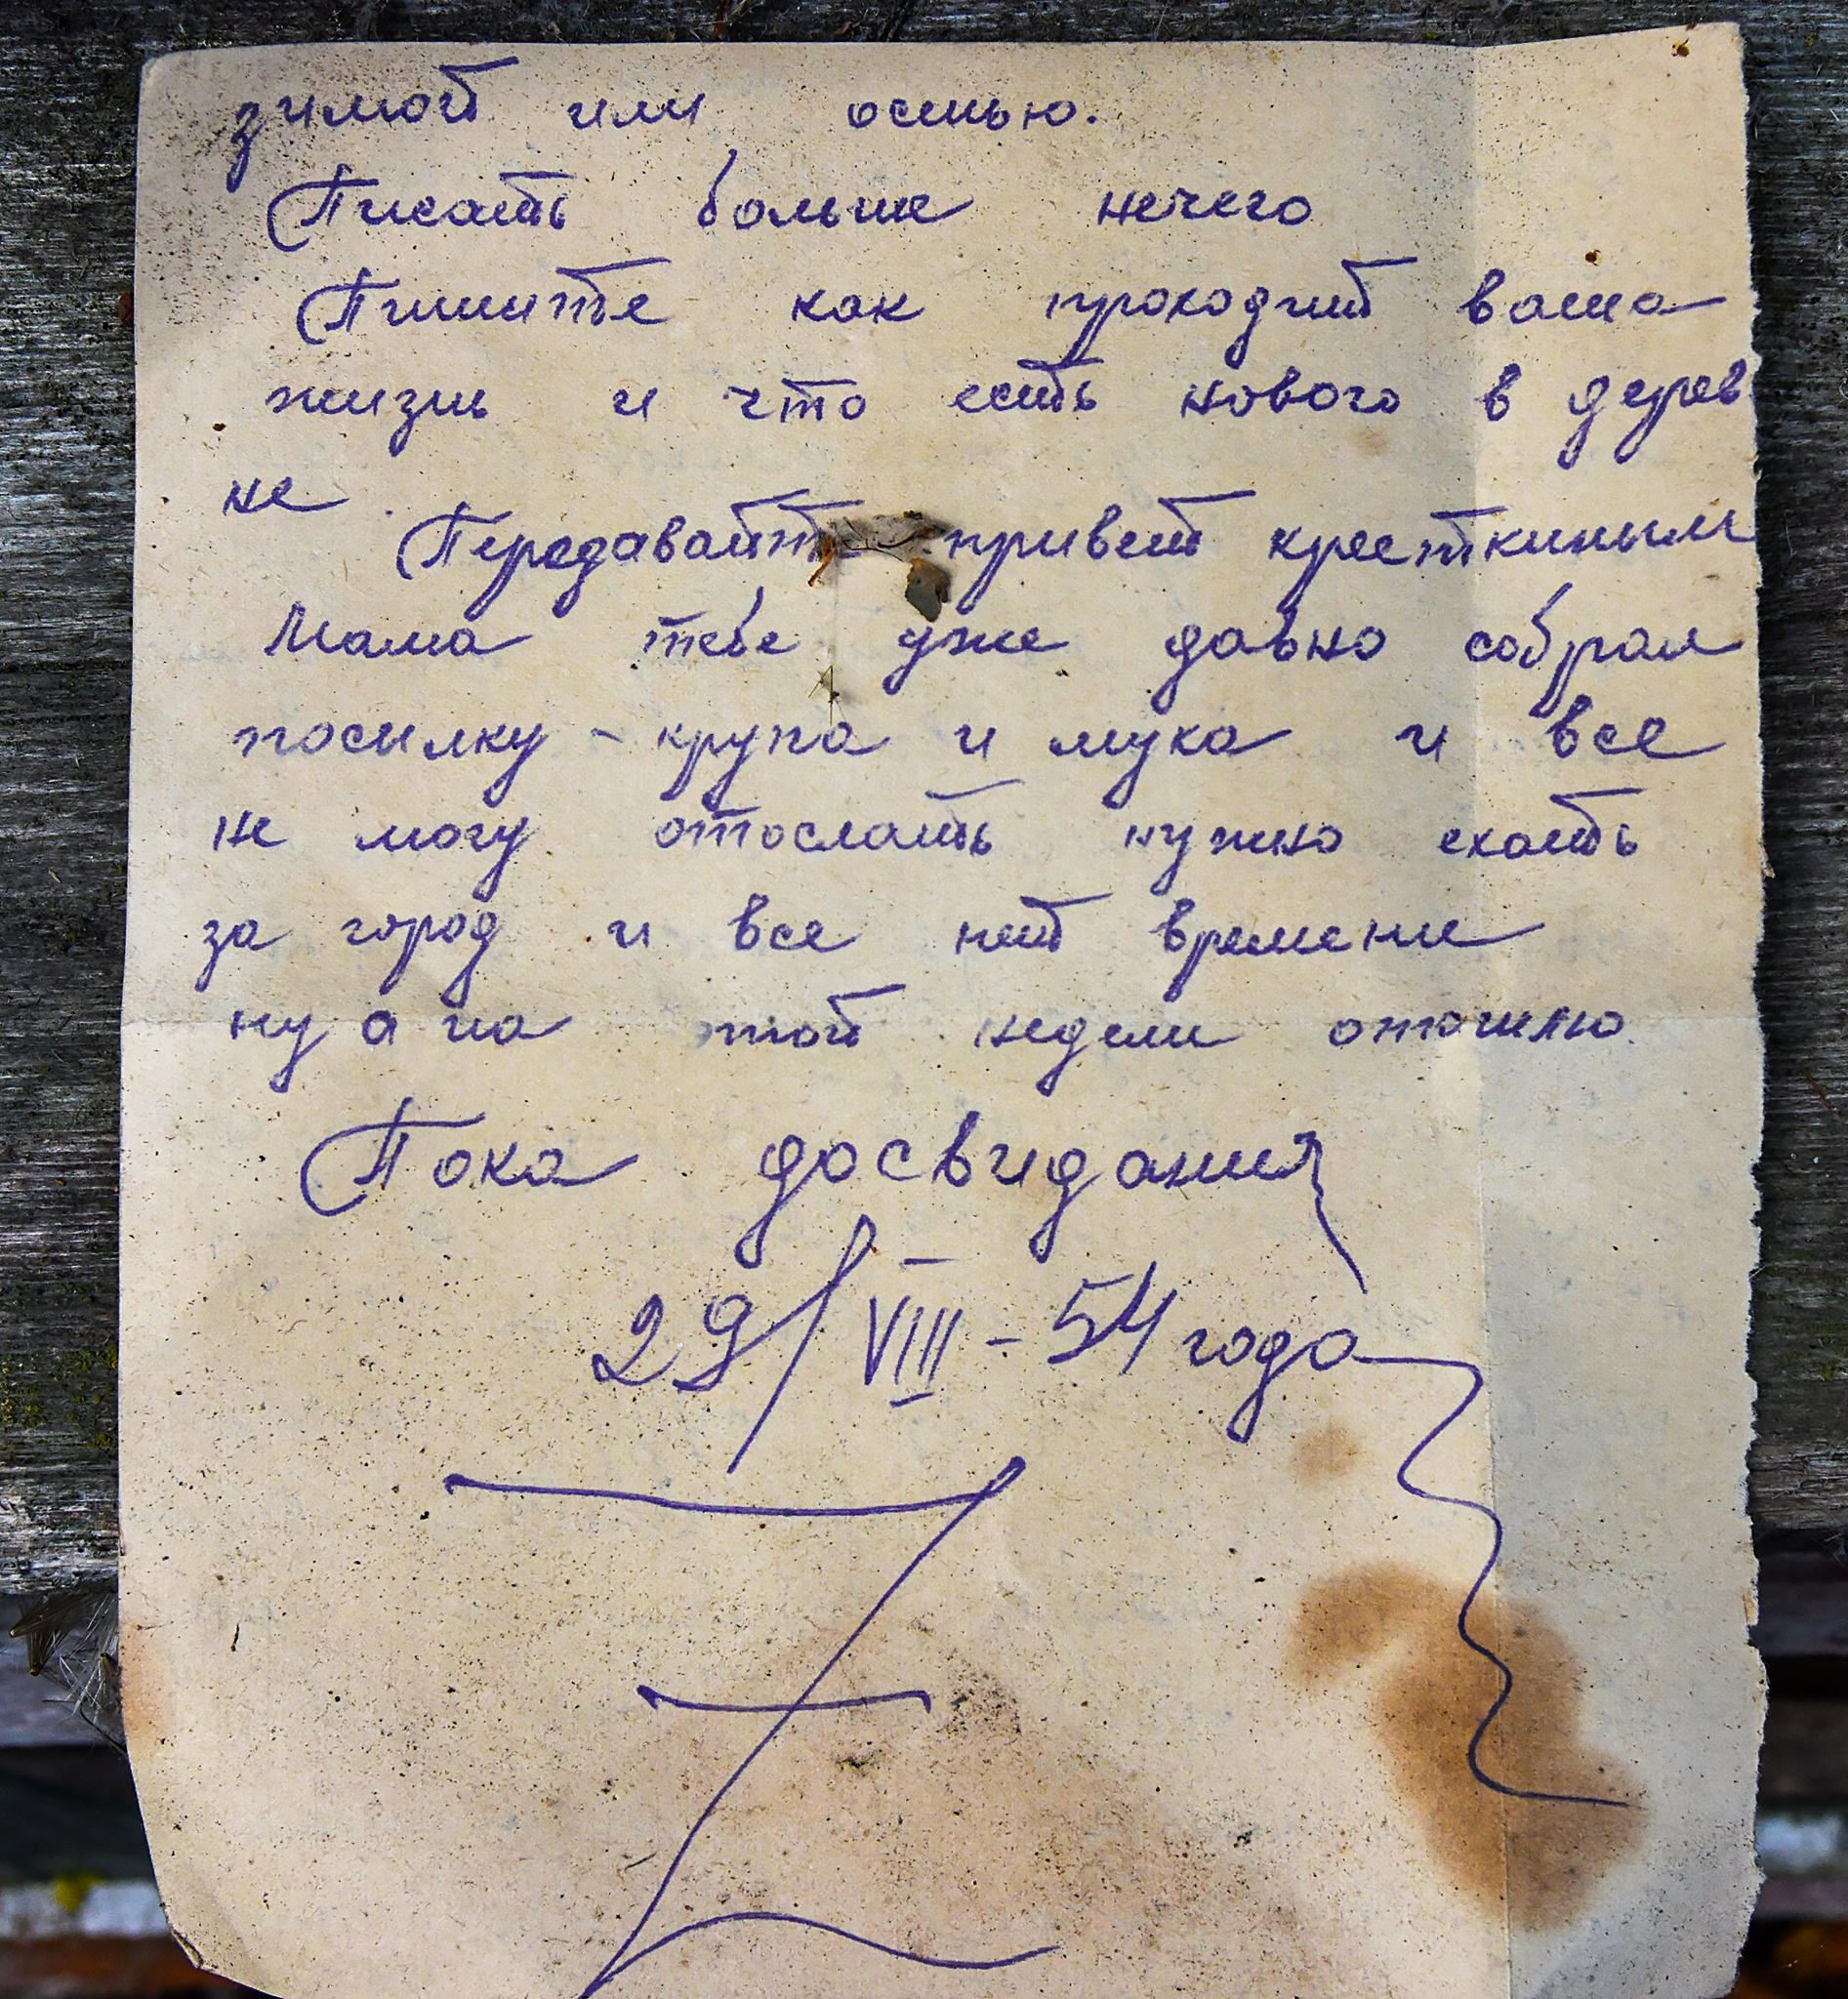 зимой или осенью.
Писать больше нечего
Пишите как проходит ваша
жизнь и что есть нового в дерев
не.
Передавайте привет кресткиным
Мама тебе уже давно собрал
посылку - крупа и мука и все
не могу отослать нужно ехать
за город и все нет времени
ну а на той недели отошлю.
Пока досвидания
29/VIII - 54 года